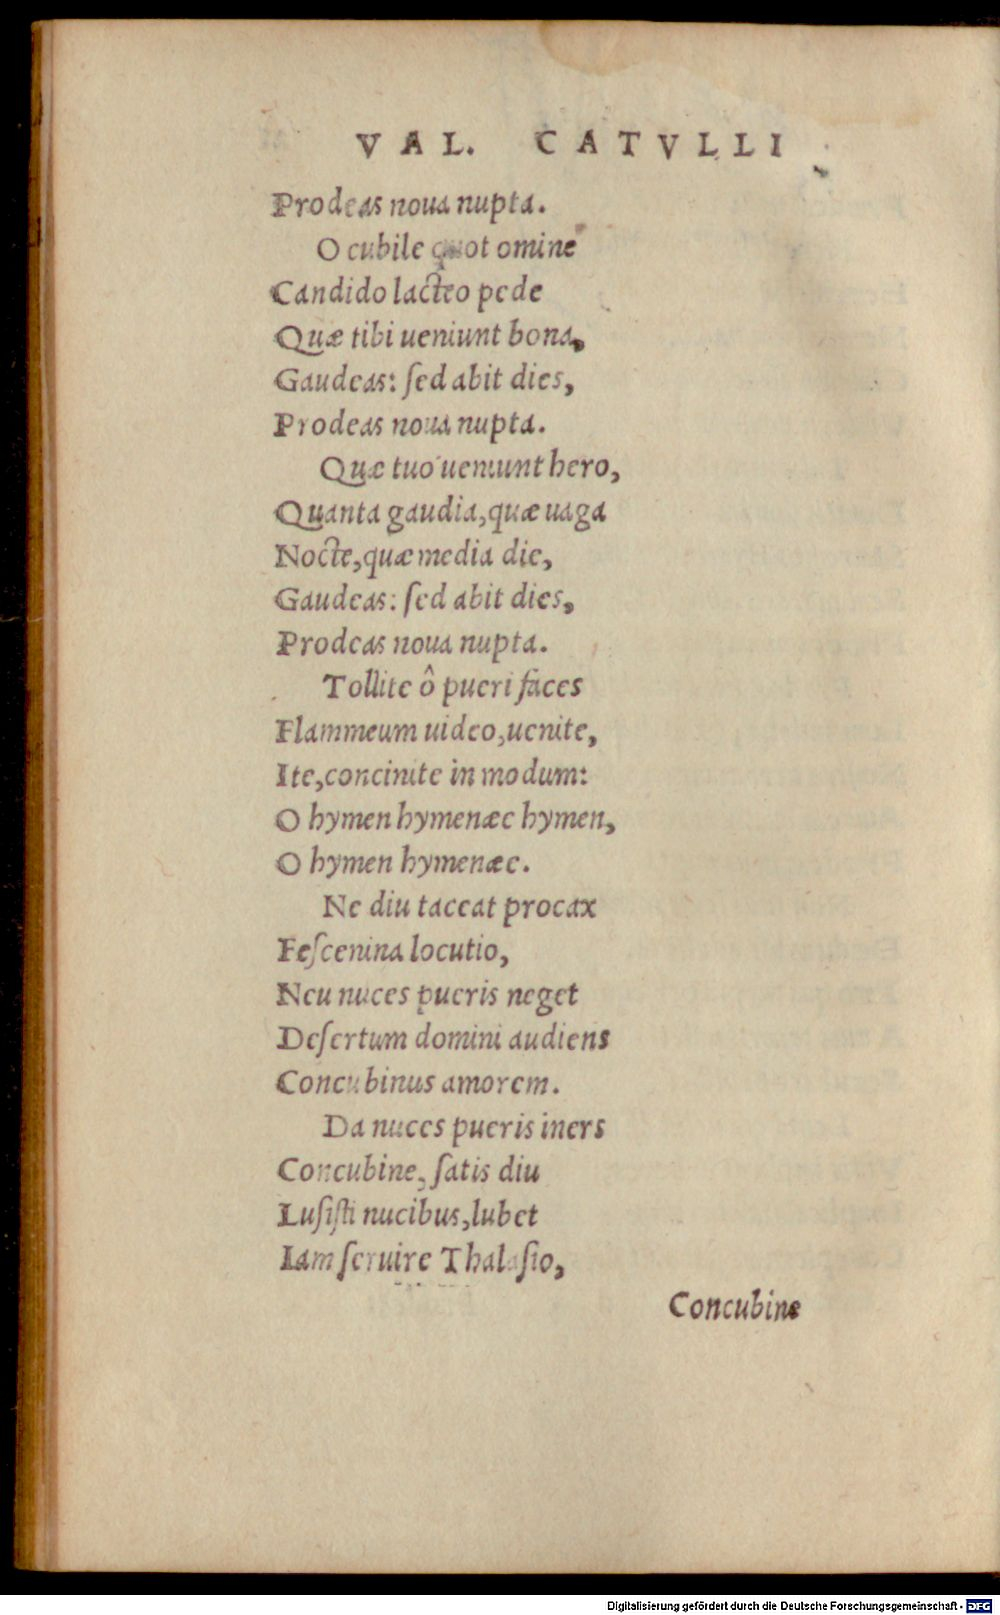 VAL. CATVLLI
Prodeas noua nupta.
O cubile quot omine
Candido lacteo pede
Quæ tibi ueniunt bona,
Gaudeas: ſed abit dies,
Prodeas noua nupta.
Quæ tuo ueniunt hero,
Quanta gaudia, quæ uaga
Nocte, quæ media die,
Gaudeas: ſed abit dies,
Prodeas noua nupta.
Tollite ô pueri faces
Flammeum uideo, uenite,
Ite, concinite in modum:
O hymen hymenæe hymen,
O hymen hymenæe.
Ne diu taceat procax
Feſcenina locutio,
Neu nuces pueris neget
Deſertum domini audiens
Concubinus amorem.
Da nuces pueris iners
Concubine, ſatis diu
Luſiſti nucibus, lubet
Iam ſeruire Thalaſio,
Concubine
Digitalisierung gefördert durch die Deutsche Forschungsgemeinschaft - DFG